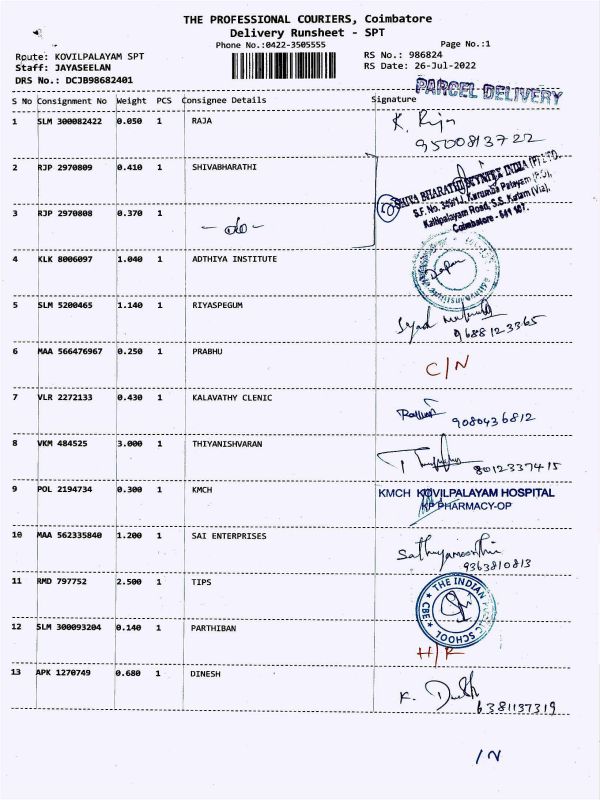 THE PROFESSIONAL COURIERS, Coimbatore
Delivery Runsheet - SPT
Phone No.:0422-3505555 Page No.:1
Route: KOVILPALAYAM SPT RS No.: 986824
Staff: JAYASEELAN RS Date: 26-Jul-2022
DRS No.: DCJB98682401
PARCEL DELIVERY
S No Consignment No Weight PCS Consignee Details Signature
1 SLM 300082422 0.050 1 RAJA K. Raja
9500813722
2 RJP 2970809 0.410 1 SHIVABHARATHI
SHIVA BHARATHI INDIA (P) LTD.
S.F. No. 345/1J, Karumba Palayam (P.O),
Kalipalayam Road, S.S. Kulam (Via),
Coimbatore - 641 107.
3 RJP 2970808 0.370 1
- do -
4 KLK 8006097 1.040 1 ADTHIYA INSTITUTE
5 SLM 5200465 1.140 1 RIYASPEGUM Syed
9688123365
6 MAA 566476967 0.250 1 PRABHU C/N
7 VLR 2272133 0.430 1 KALAVATHY CLENIC
9080436812
8 VKM 484525 3.000 1 THIYANISHVARAN
8012337415
9 POL 2194734 0.300 1 KMCH KMCH KOVILPALAYAM HOSPITAL
KP PHARMACY-OP
10 MAA 562335840 1.200 1 SAI ENTERPRISES Sathyamoorthi
9363810813
11 RMD 797752 2.500 1 TIPS THE INDIAN PUBLIC SCHOOL
CBE.
12 SLM 300093204 0.140 1 PARTHIBAN
H/R
13 APK 1270749 0.680 1 DINESH K. Dinesh
6381137319
IN